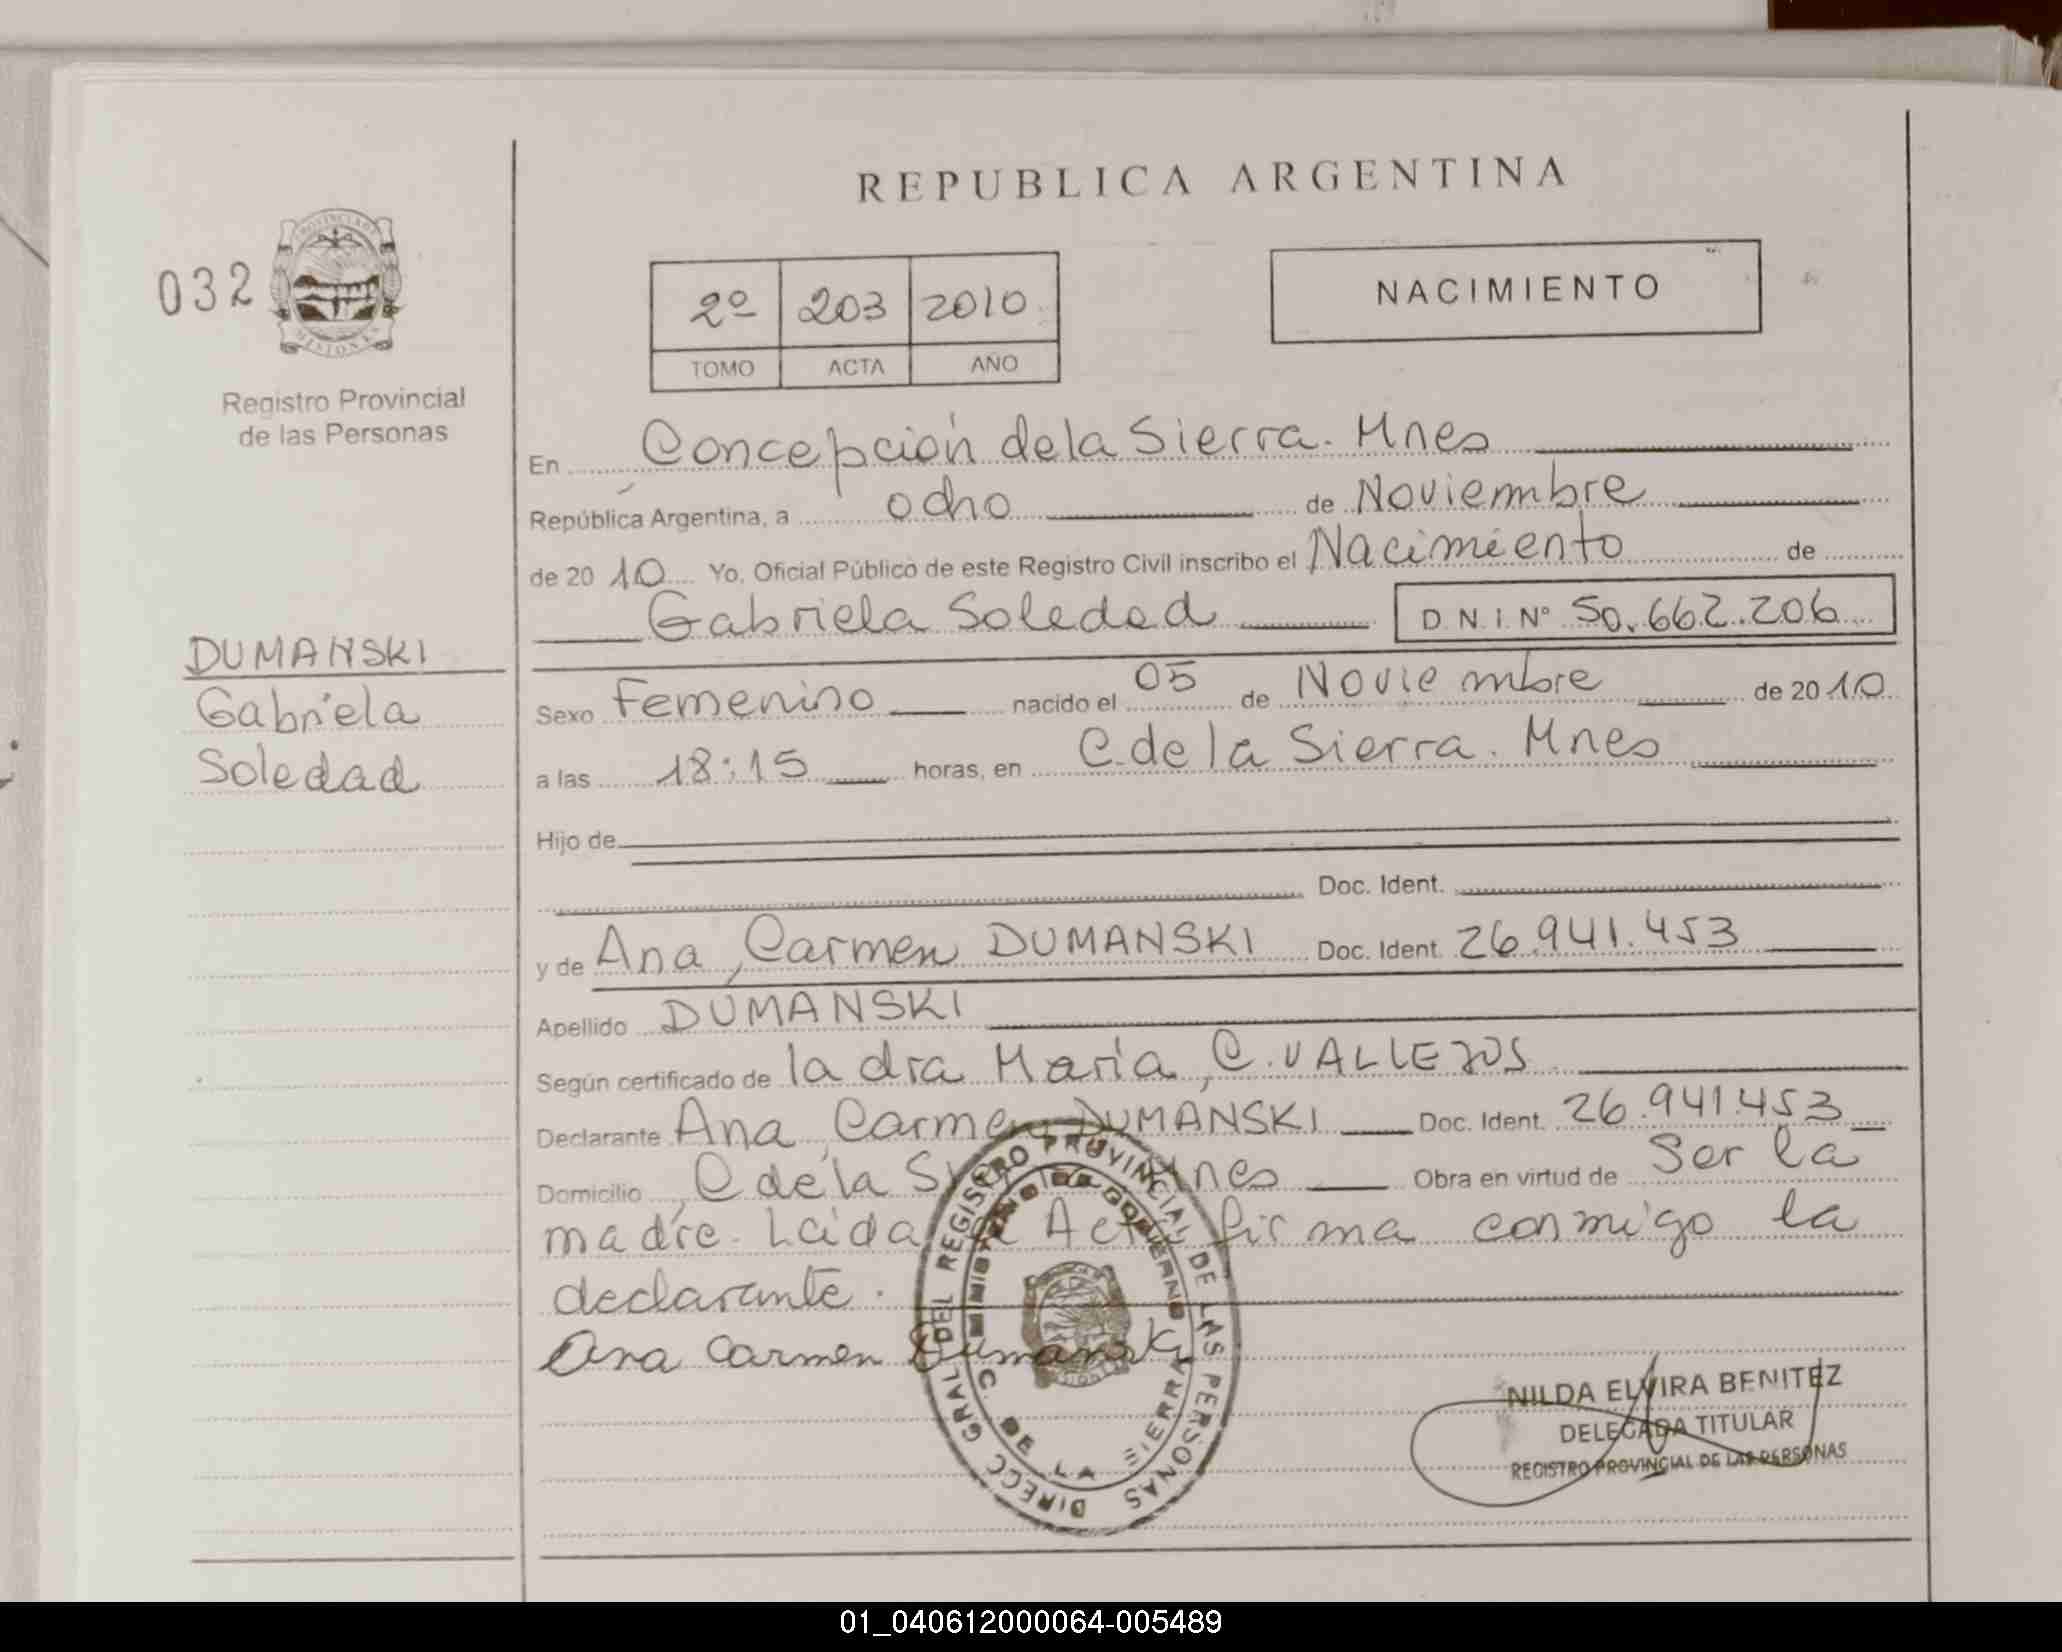 REPUBLICA ARGENTINA
032
PROVINCIA DE MISIONES
Registro Provincial
de las Personas
2º 203 2010
TOMO ACTA AÑO
NACIMIENTO
En Concepción de la Sierra. Mnes
República Argentina, a ocho de Noviembre
de 2010 Yo, Oficial Público de este Registro Civil inscribo el Nacimiento de
Gabriela Soledad D.N.I. Nº 50.662.206
DUMANSKI
Gabriela
Soledad
Sexo Femenino nacido el 05 de Noviembre de 2010
a las 18:15 horas, en C. de la Sierra. Mnes
Hijo de
Doc. Ident.
y de Ana Carmen DUMANSKI Doc. Ident. 26.941.453
Apellido DUMANSKI
Según certificado de la dra María C. VALLEJOS
Declarante Ana Carmen DUMANSKI Doc. Ident. 26.941.453
Domicilio C de la Sierra Mnes Obra en virtud de Ser la
madre. Leida el Acta firma conmigo la
declarante.
Ana Carmen Dumanski
DIRECC GRAL DEL REGISTRO PROVINCIAL DE LAS PERSONAS
MINISTERIO DE GOBIERNO
C. DE LA SIERRA
NILDA ELVIRA BENITEZ
DELEGADA TITULAR
REGISTRO PROVINCIAL DE LAS PERSONAS
01_040612000064-005489